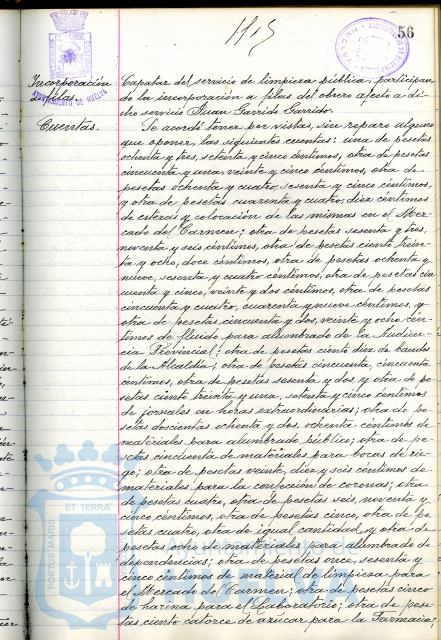 1915
56
AYUNTAMIENTO DE HUELVA
Incorporación
filas.
Cuentas.
Capataz del servicio de limpieza pública, participan
de la incorporación a filas del obrero afecto a di-
cho servicio Juan Garrido Garrido.
Se acordó tener por vistas, sin reparo alguno
que oponer, las siguientes cuentas: una de pesetas
ochenta y tres, setenta y cinco céntimos, otra de pesetas
cincuenta y una, veinte y cinco céntimos, otra de
pesetas ochenta y cuatro, sesenta y cinco céntimos,
y otra de pesetas cuarenta y cuatro, diez céntimos
de esteras y colocación de las mismas en el Mer-
cado del Carmen; otra de pesetas sesenta y tres,
noventa y seis céntimos, otra de pesetas ciento trein-
ta y ocho, doce céntimos, otra de pesetas ochenta y
nueve, sesenta y cuatro céntimos, otra de pesetas cin-
cuenta y cinco, veinte y dos céntimos, otra de pesetas
cincuenta y cuatro, cuarenta y nueve céntimos, y
otra de pesetas cincuenta y dos, veinte y ocho cén-
timos de fluido para alumbrado de la Audien-
cia Provincial; otra de pesetas ciento diez de bandes
de la Alcaldía; otra de pesetas cincuenta, cincuenta
céntimos, otra de pesetas sesenta y dos y otra de pe-
setas ciento treinta y una, setenta y cinco céntimos
de jornales en horas extraordinarias; otra de pe-
setas doscientas ochenta y dos, ochenta céntimos de
materiales para alumbrado público; otra de pe-
setas cincuenta de materiales para bocas de rie-
go; otra de pesetas veinte, diez y seis céntimos de
materiales para la confección de coronas; otra
de pesetas cuatro, otra de pesetas seis, noventa y
cinco céntimos, otra de pesetas cinco, otra de pe-
setas cuatro, otra de igual cantidad y otra de
pesetas once de materiales para alumbrado de
dependencias; otra de pesetas once, sesenta y
cinco céntimos de material de limpieza para
el Mercado del Carmen; otra de pesetas cinco
de harina para el Laboratorio; otra de pese-
tas ciento catorce de azúcar para la Farmacia;
PORTUS MARIS
ET TERRAE
Ayuntamiento de